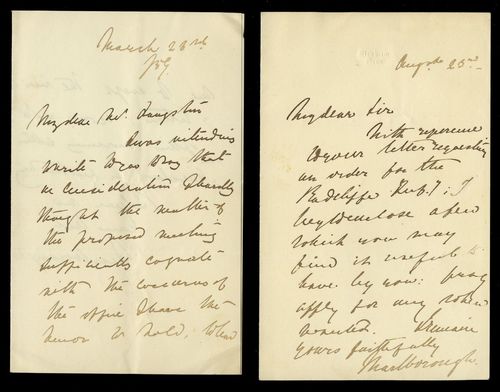 March 23rd
My dear Mr. Langston
I was intending
write to you to say that
on consideration I hardly
thought the matter of
the proposed meeting
sufficiently cognate
with the concerns of
the office I have the
honor to hold, when
Augst 23rd
My dear Sir
With reference
to your letter requesting
an order for the
Radcliffe
I enclose a few
which you may
find it useful to
have by you: pray
apply for any when
wanted. I remain
yours faithfully
Marlborough